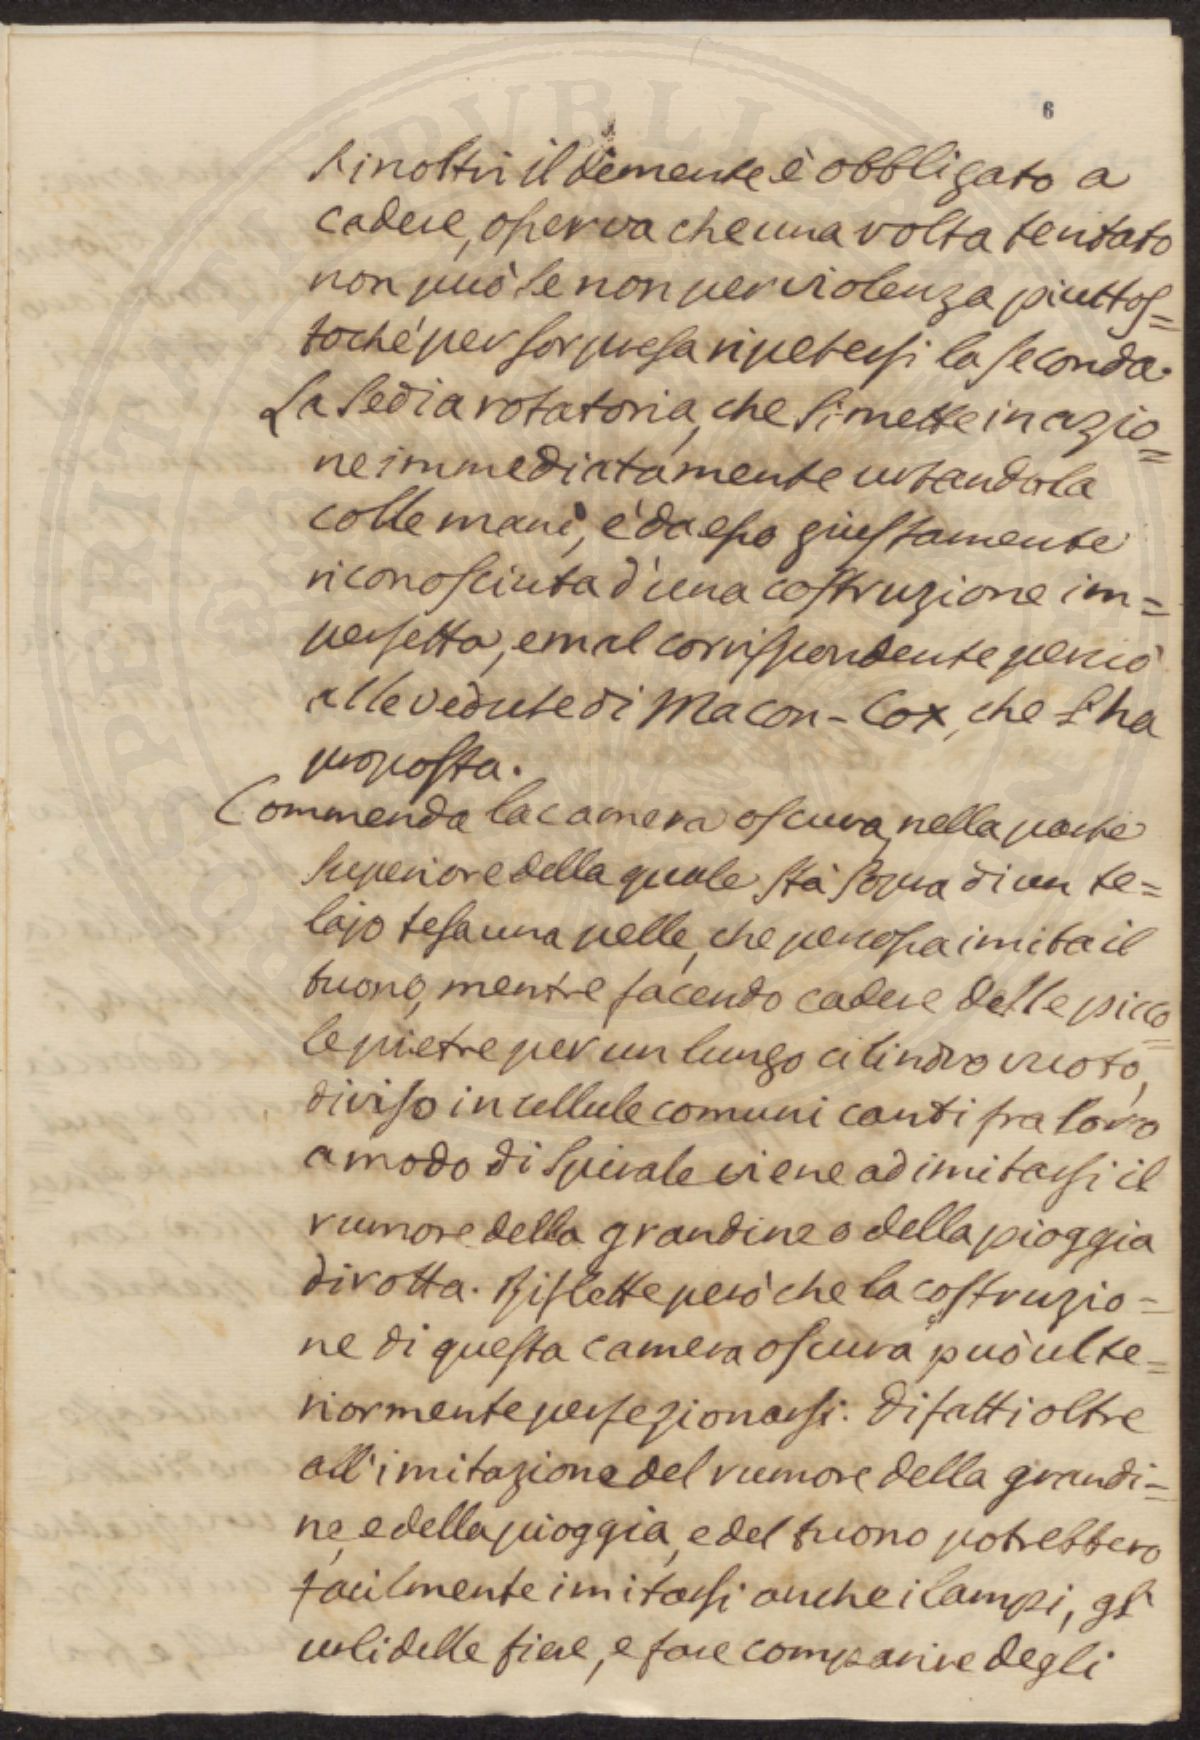 6
s'inoltri il demente è obbligato a
cadere, osserva che una volta tentato
non può se non per violenza piuttos=
tochè per sorpresa ripetersi la seconda.
La Sedia rotatoria, che si mette in azio=
ne immediatamente urtandola
colle mani, è da esso giustamente
riconosciuta d'una costruzione im=
perfetta, e mal corrispondente perciò
alle vedute di Macon-Cox, che l'ha
proposta.
Commenda la camera oscura, nella parte
superiore della quale stà sopra di un te=
lajo tesa una pelle, che percossa imita il
tuono, mentre facendo cadere delle picco=
le pietre per un lungo cilindro vuoto,
diviso in cellule comunicanti fra loro
a modo di spirale viene ad imitarsi il
rumore della grandine o della pioggia
dirotta. Riflette però che la costruzio=
ne di questa camera oscura può ulte=
riormente perfezionarsi. Difatti oltre
all'imitazione del rumore della grandi=
ne, e della pioggia, e del tuono potrebbero
facilmente imitarsi anche i lampi, gl'
urli delle fiere, e fare comparire degli